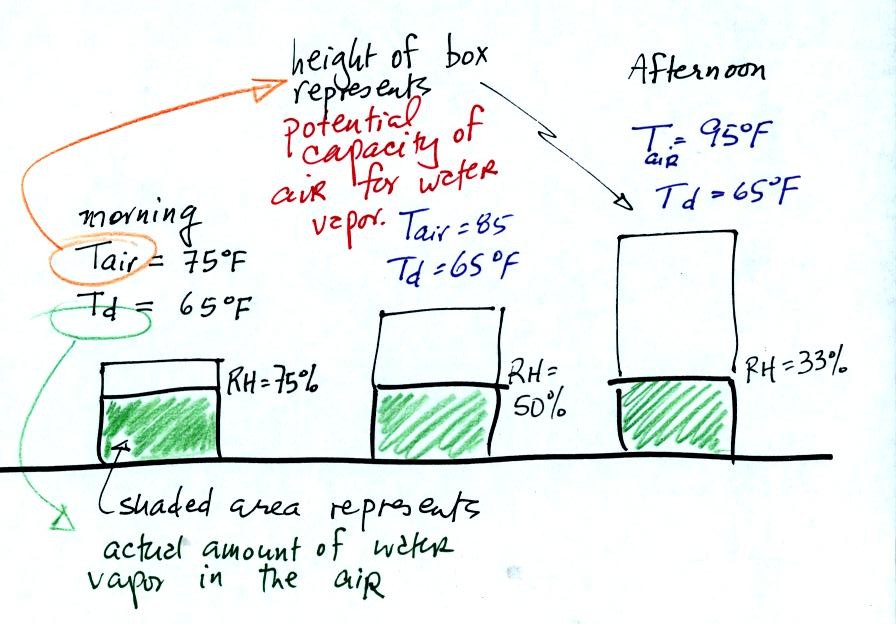 height of box
represents
potential
capacity of
air for water
vapor.
morning
Tair = 75°F
Td = 65°F
RH=75%
Tair = 85
Td = 65°F
RH=
50%
Afternoon
Tair = 95°F
Td = 65°F
RH=33%
shaded area represents
actual amount of water
vapor in the air